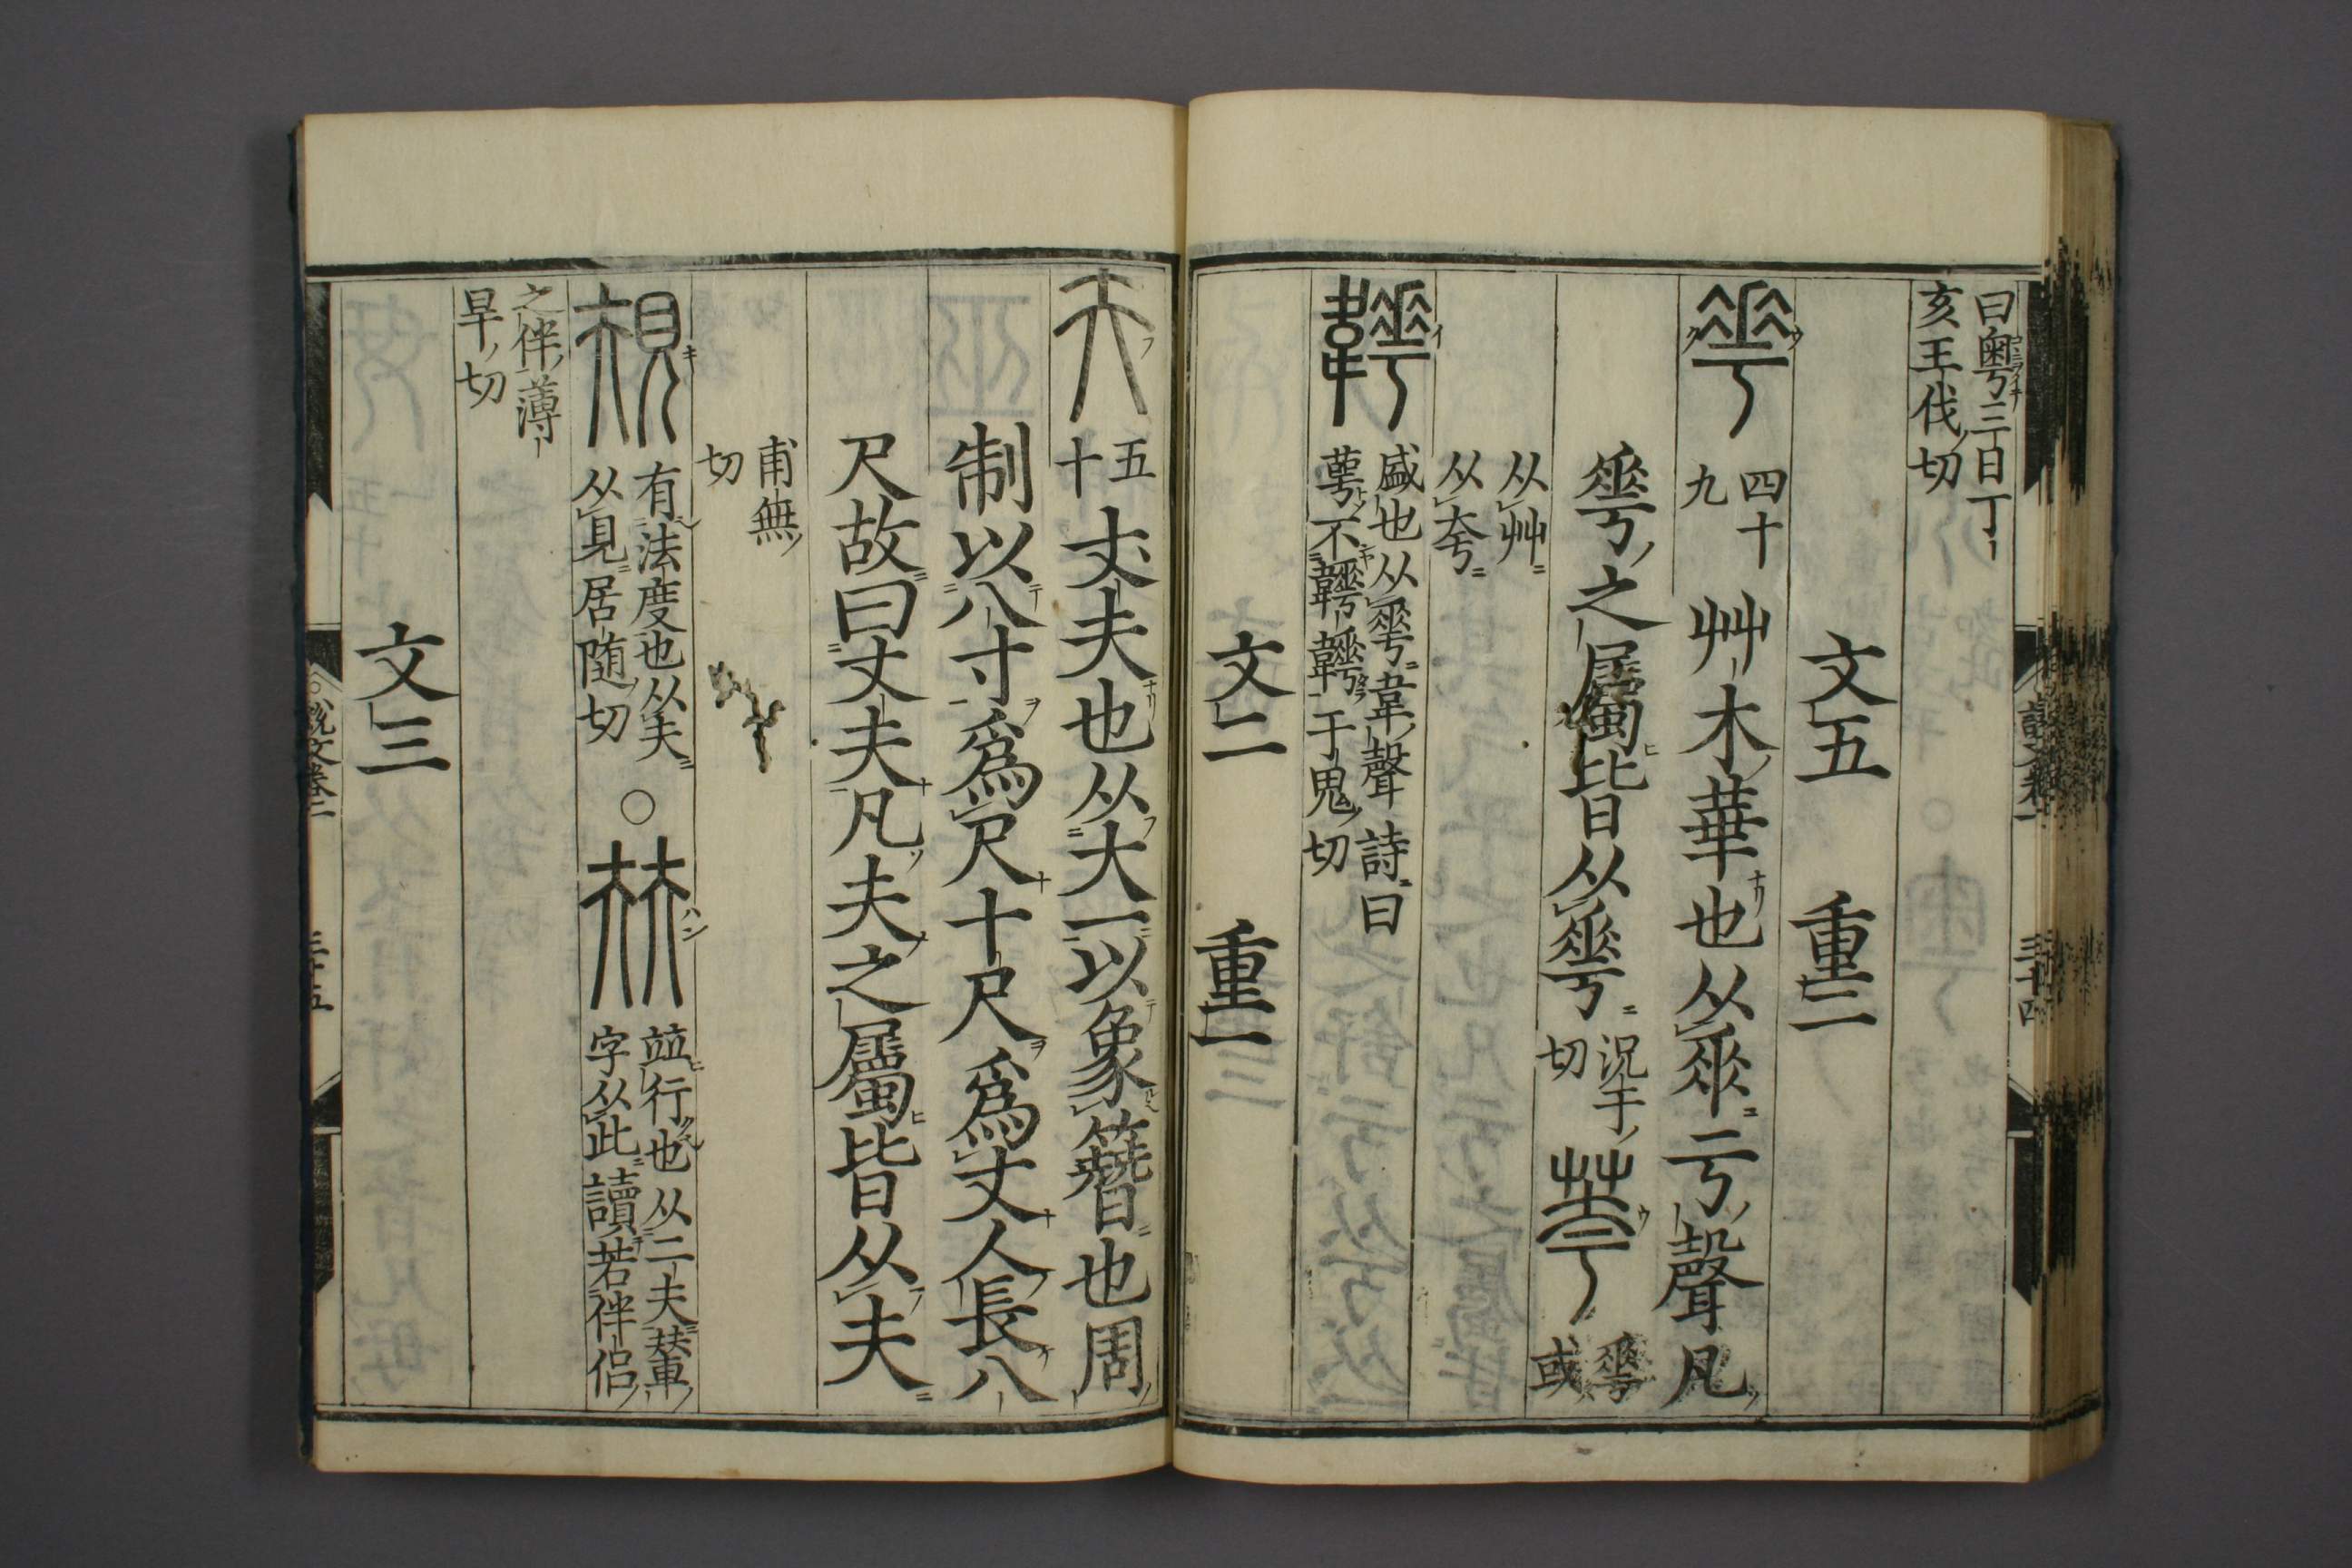 曰粵三日丁
亥王伐切
文五　重二
𠌶　四十九　艸木華也从𠂹亏聲凡
𠌶之屬皆从𠌶　況于切　荂　𠌶或
从艸
从夸
𩏠　盛也从𠌶韋聲詩曰
萼不𩏠𩏠于鬼切
文二　重一
夫　五十　丈夫也从大一以象簪也周
制以八寸爲尺十尺爲丈人長八
尺故曰丈夫凡夫之屬皆从夫
甫無
切
規　有法度也从夫
从見居随切
○㚘　竝行也从二夫輦
字从此讀若伴侣
之伴薄
旱切
文三
說文卷二
三十五